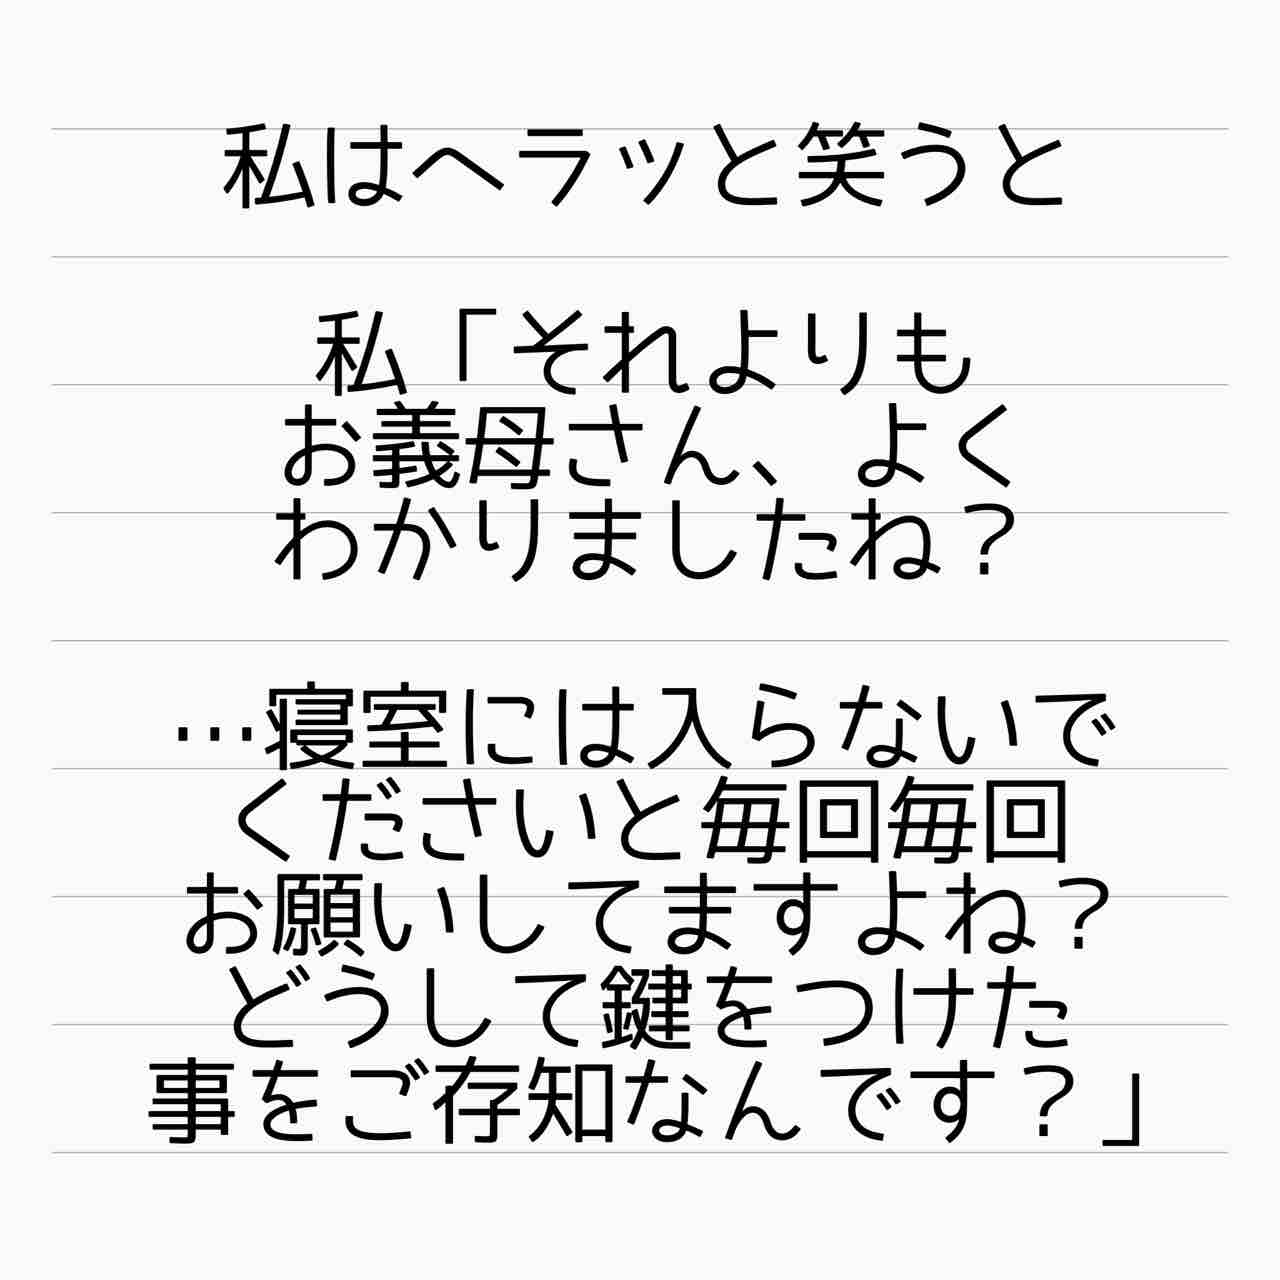 私はヘラッと笑うと
私「それよりも
お義母さん、よく
わかりましたね？
…寝室には入らないで
くださいと毎回毎回
お願いしてますよね？
どうして鍵をつけた
事をご存知なんです？」